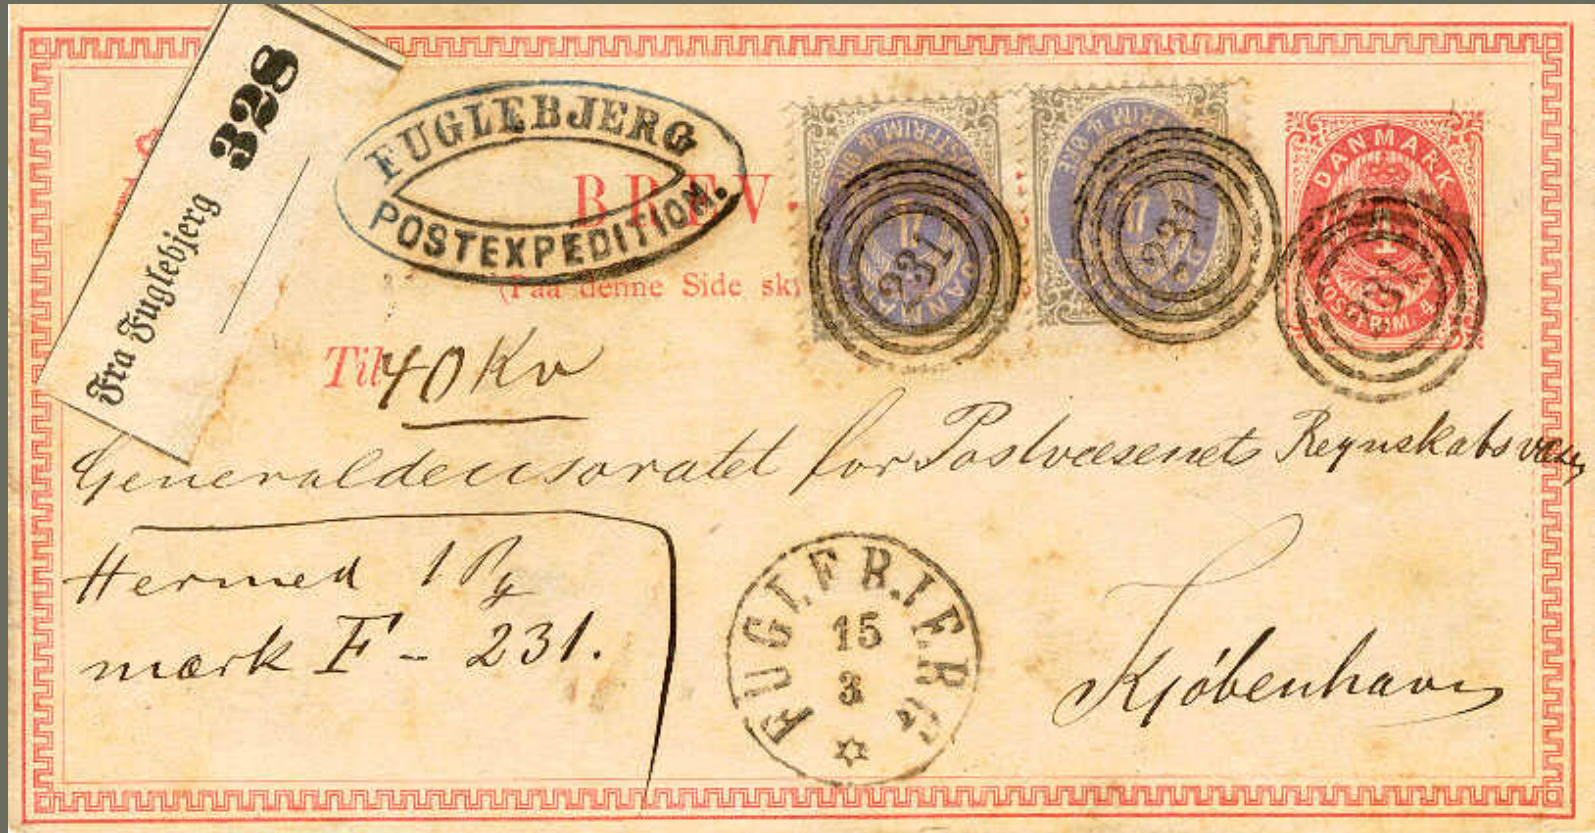 Fra Fuglebjerg 328
FUGLEBJERG
POSTEXPEDITION.
BREV
(Paa denne Side sk
DANMARK
POSTFRIM. 8
231
231
231
Til 40 Kr
Generaldecisoratet for Postvæsenets Regnskabsvæsen
Hermed 1 Pg
mærk F - 231.
FUGLEBJERG
15
3
Kjöbenhavn